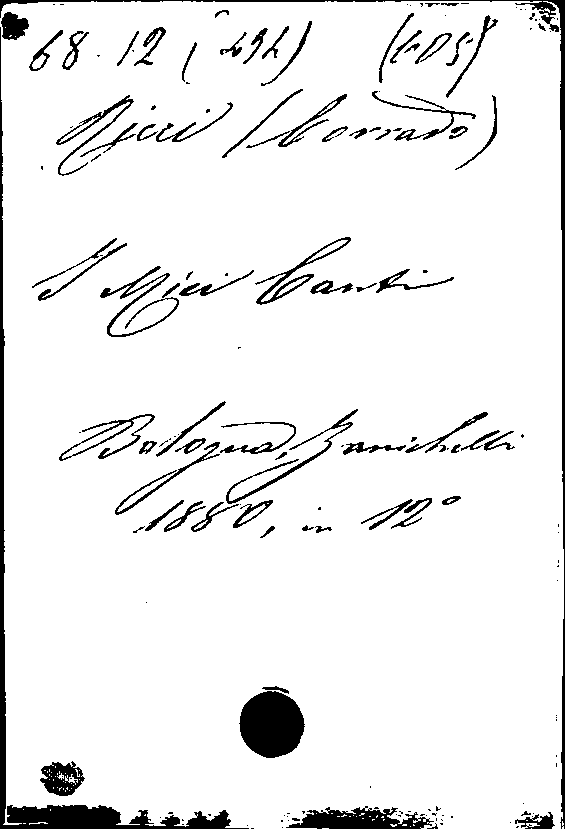 68. 12 (494) (605)
Ricci (Corrado)
I Miei Canti
Bologna, Zanichelli
1880, in 12°